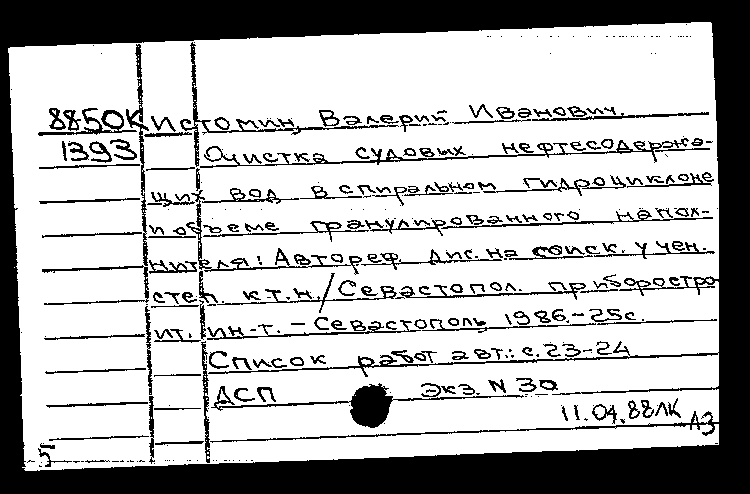 88-50К Истомин, Валерий Иванович.
1393 Очистка судовых нефтесодержа-
щих вод в спиральном гидроциклоне
и объеме гранулированного напол-
нителя: Автореф. дис. на соиск. учен.
степ. к.т.н. / Севастопол. приборостро-
ит. ин-т. - Севастополь, 1986. - 25с.
Список работ авт.: с. 23-24
ДСП Экз. N 30
11.04.88 ЛК
АЗ